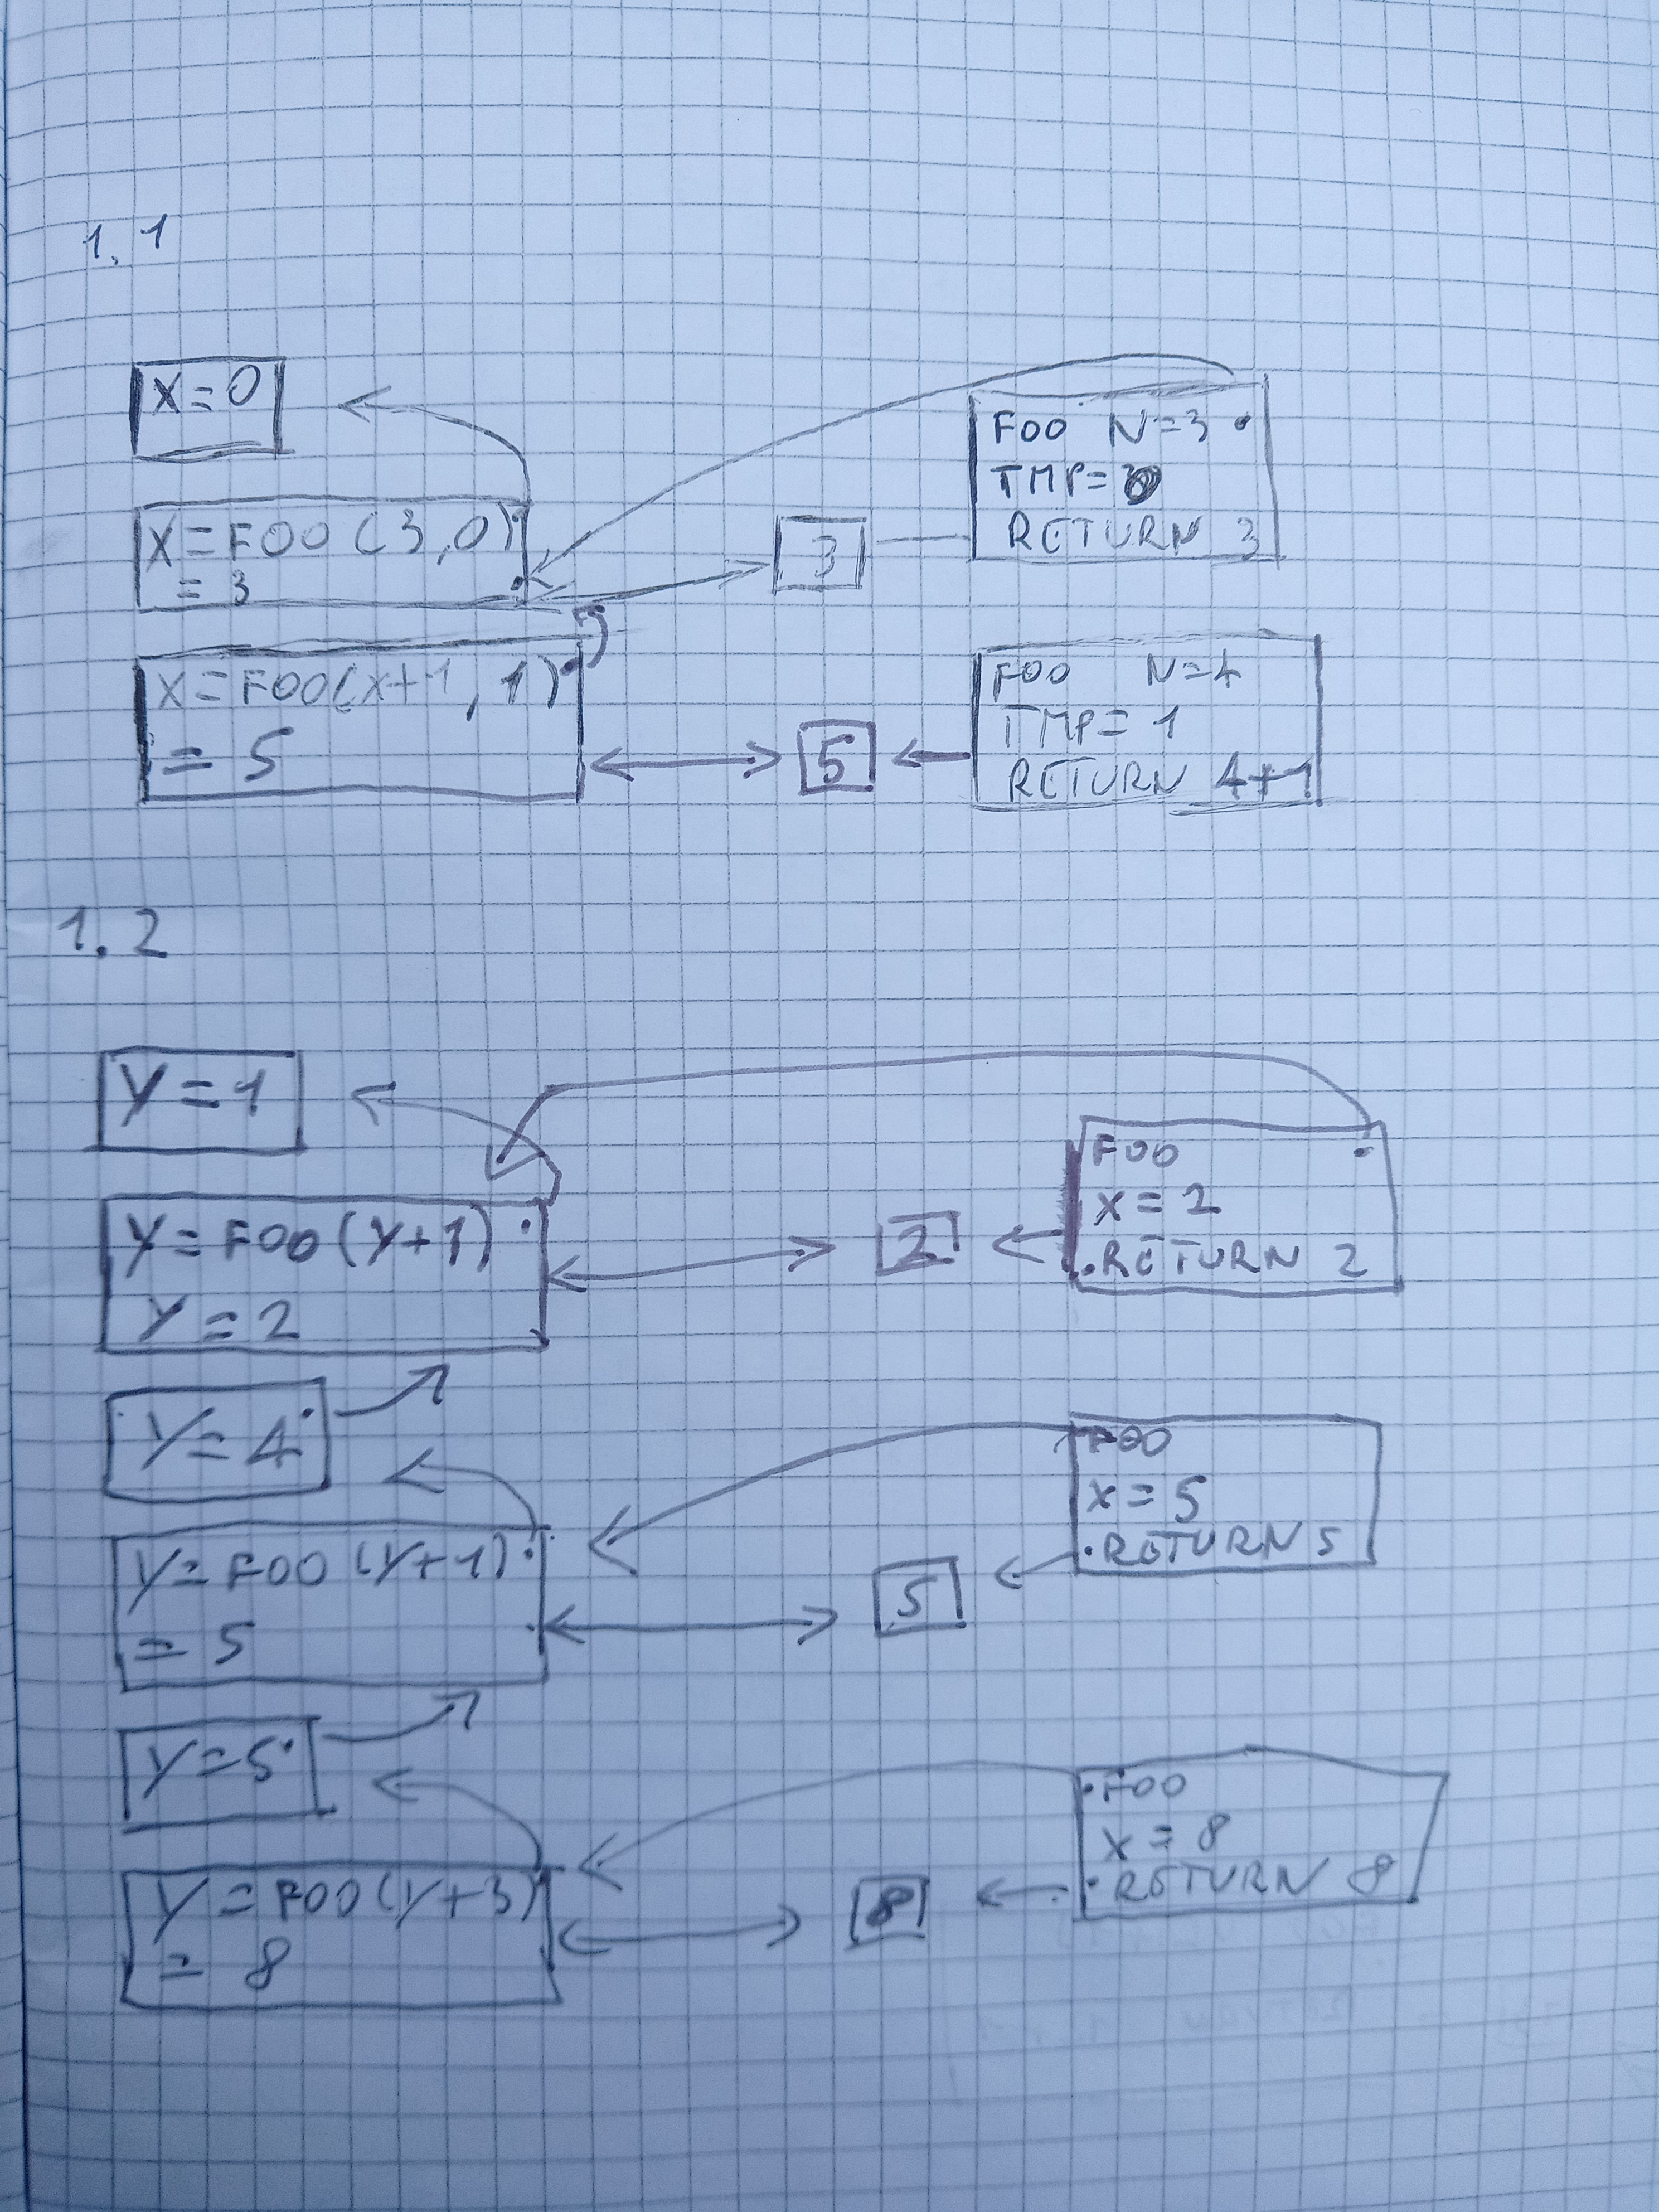 1.1
X=0
X=FOO(3,0)
= 3
3
FOO N=3
TMP=
RETURN 3
X=FOO(X+1,1)
= 5
5
FOO N=4
TMP=1
RETURN 4+1
1.2
Y=1
Y=FOO(Y+1)
Y=2
2
FOO
X=2
RETURN 2
Y=4
Y=FOO(Y+1)
= 5
5
FOO
X=5
RETURN 5
Y=5
Y=FOO(Y+3)
= 8
8
FOO
X=8
RETURN 8